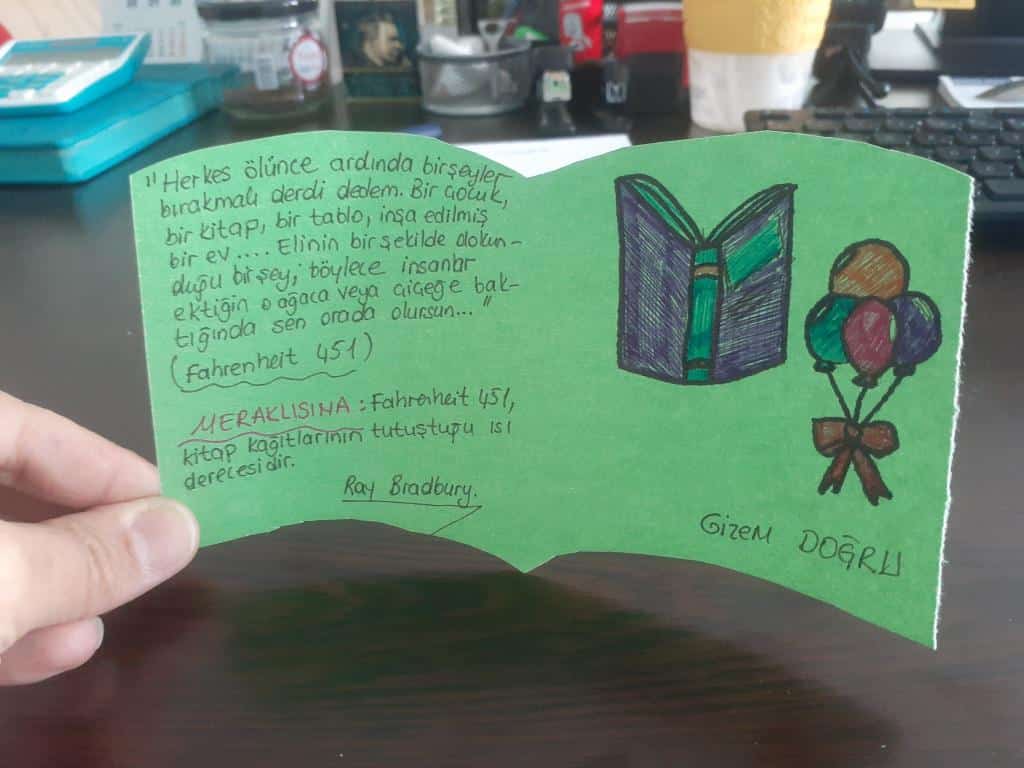 "Herkes ölünce ardında birşeyler
bırakmalı derdi dedem. Bir çocuk,
bir kitap, bir tablo, inşa edilmiş
bir ev.... Elinin bir şekilde dokun-
duğu bir şey, böylece insanlar
ektiğin o ağaca veya çiçeğe bak-
tığında sen orada olursun..."
(Fahrenheit 451)
MERAKLISINA: Fahrenheit 451,
kitap kağıtlarının tutuştuğu ısı
derecesidir.
Ray Bradbury.
Gizem DOĞRU